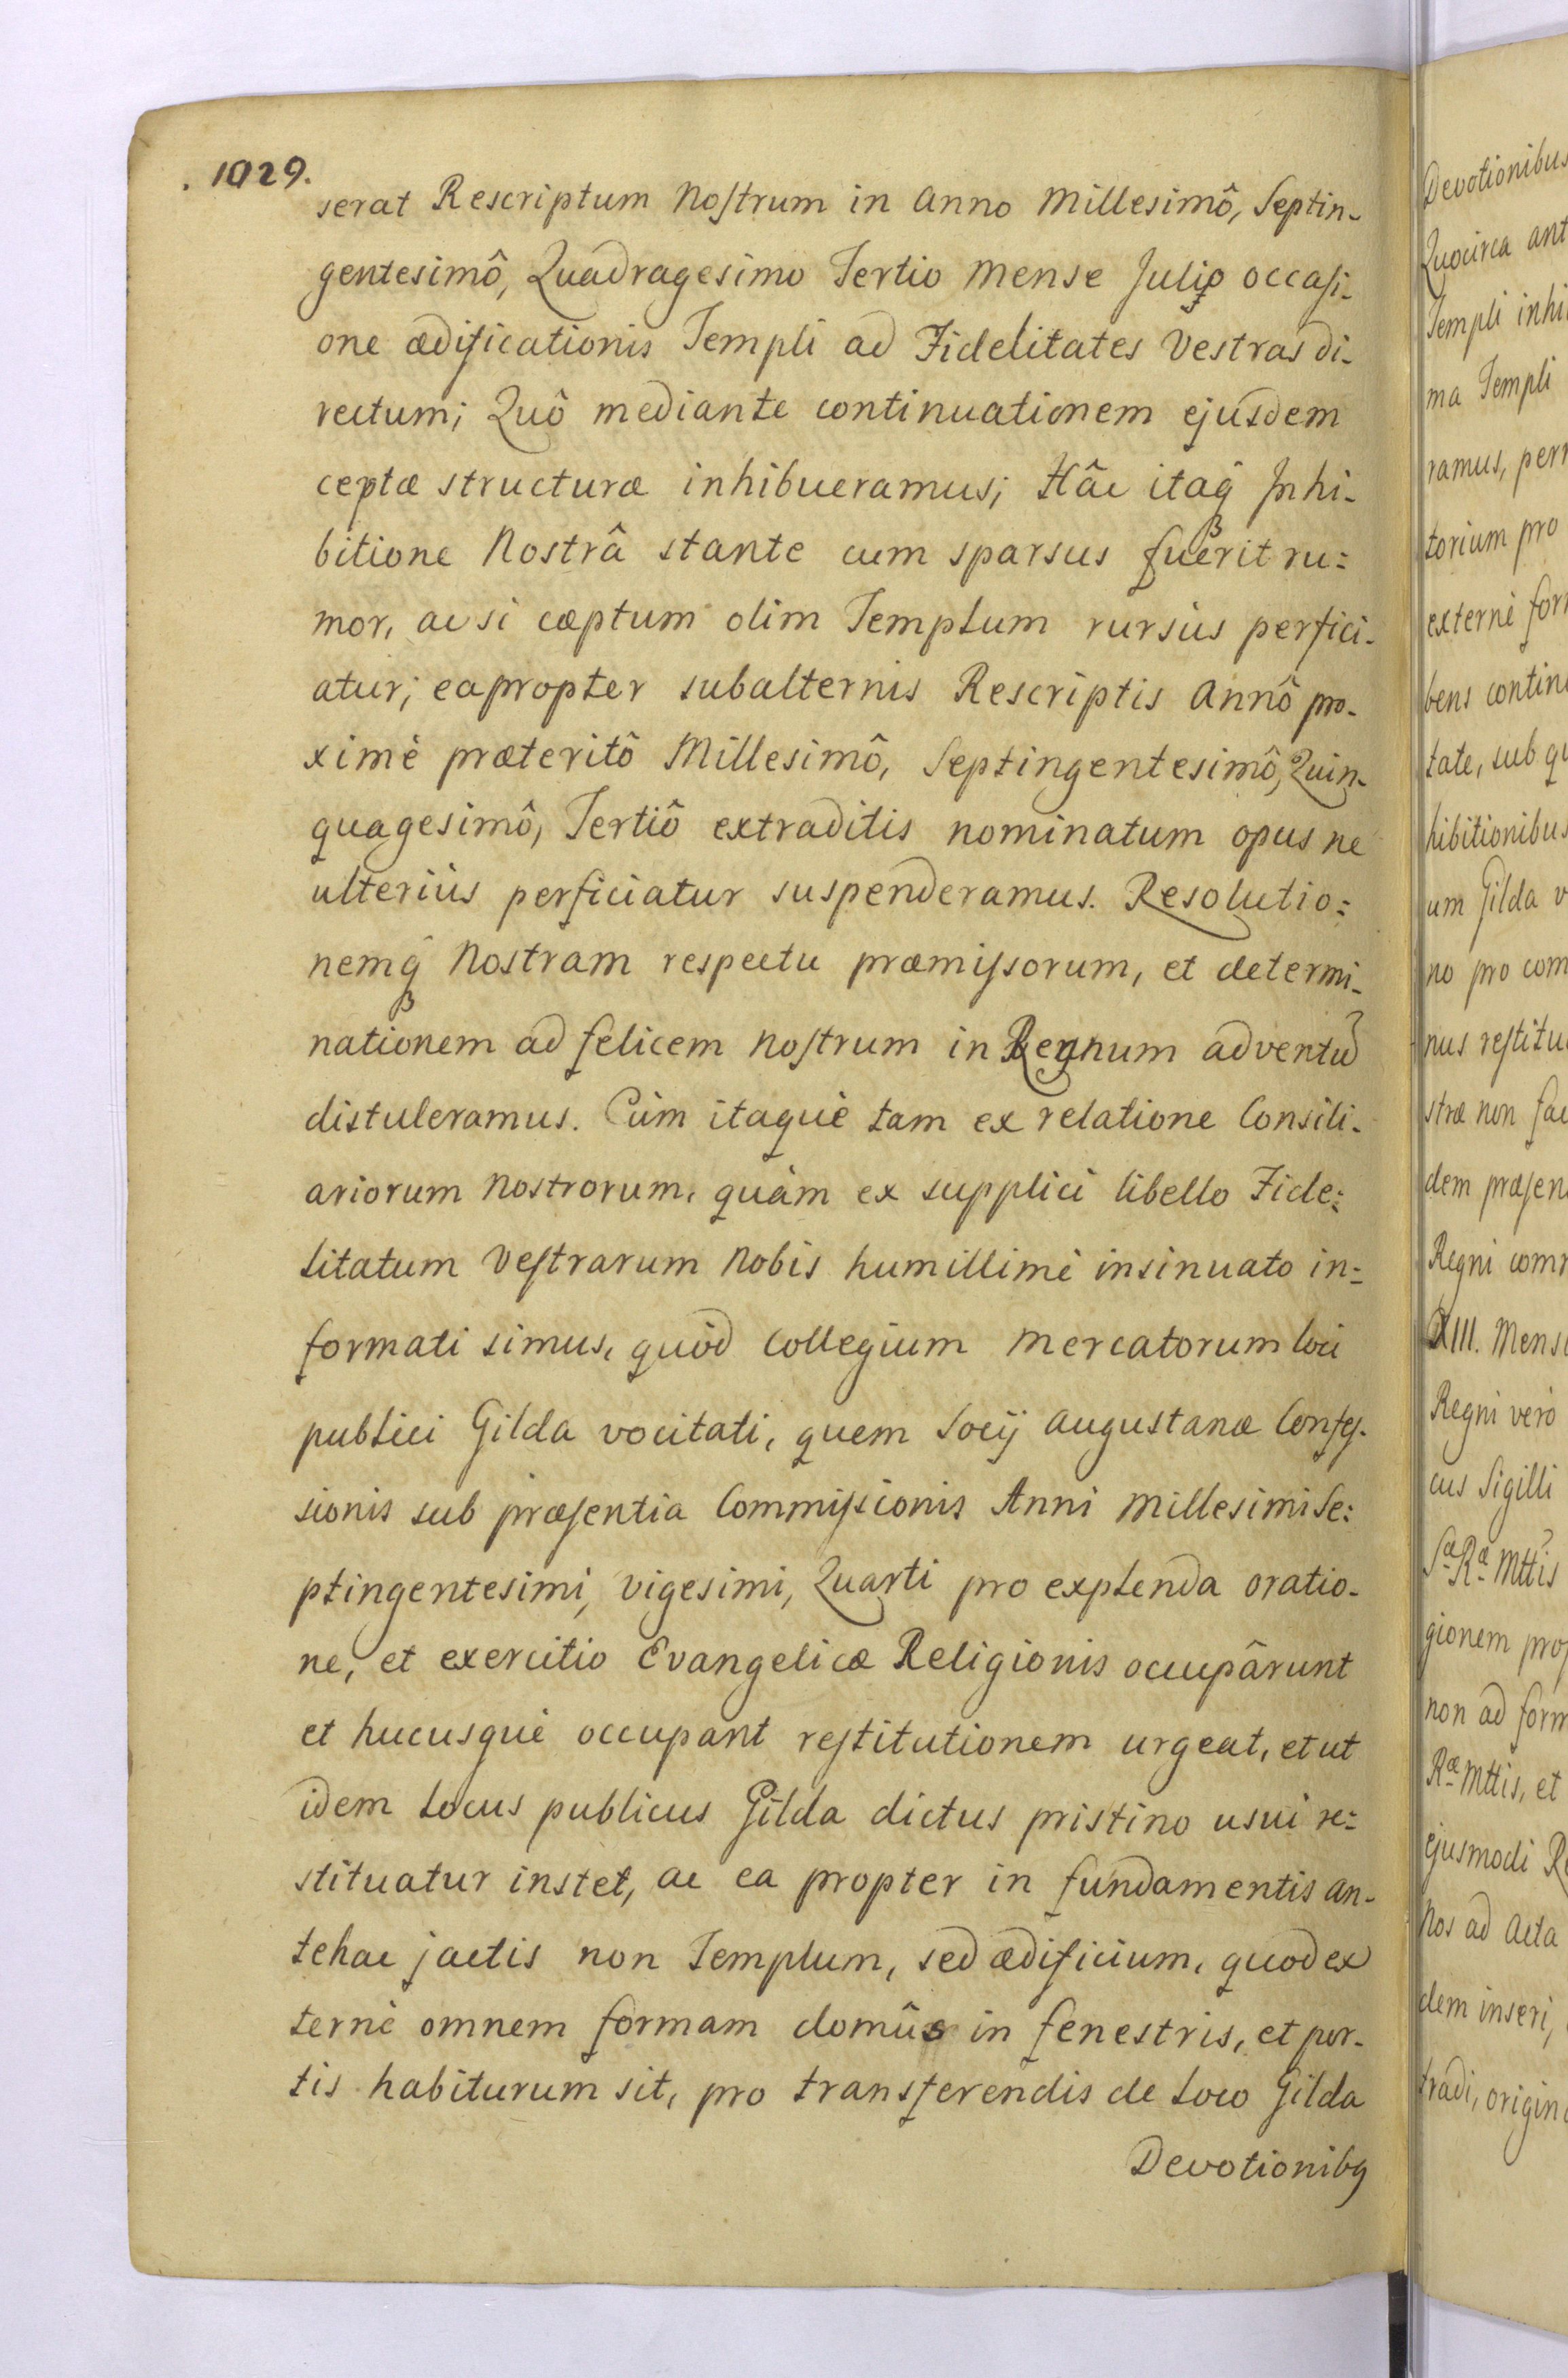 . 1029.
serat Rescriptum Nostrum in Anno Millesimô, Septin-
gentesimô, Quadragesimo Tertio mense Julijo occasi-
one ædificationis Templi ad Fidelitates Vestras di-
rectum; Quô mediante continuationem ejusdem
ceptæ structuræ inhibueramus; Hâc itaq́ꝫ Inhi-
bitione Nostrâ stante cum sparsus fuerit ru=
mor, ac si cæptum olim Templum rursùs perfici-
atur; eapropter subalternis Rescriptis Annô pro-
ximè præteritô Millesimô, Septingentesimô, Quin-
quagesimô, Tertiô extraditis nominatum opus ne
ulteriùs perficiatur suspenderamus. Resolutio=
nemq́ꝫ Nostram respectu præmissorum, et determi-
nationem ad felicem nostrum in Regnum adventũ
distuleramus. Cùm itaquè tam ex relatione Consili-
ariorum Nostrorum, quàm ex supplici libello Fide=
litatum Vestrarum Nobis humillimè insinuato in=
formati simus, quòd Collegium Mercatorum loci
publici Gilda vocitati, quem Socij Augustanæ Confes-
sionis sub præsentia Commissionis Anni Millesimi Se=
ptingentesimi, vigesimi, Quarti pro explenda oratio-
ne, et exercitio Evangelicæ Religionis occupârunt
et hucusquè occupant restitutionem urgeat, et ut
idem locus publicus Gilda dictus pristino usui re=
stituatur instet, ac ea propter in fundamentis an-
tehac jactis non Templum, sed ædificium, quod ex
ternè omnem formam domûs in fenestris, et por-
tis habiturum sit, pro transferendis de loco Gilda
Devotionibꝰ
Devotionibus
Quocirca ant
Templi inhi
ma Templi
ramus, perr
torium pro
externè for
bens contin
tate, sub qu
hibitionibus
um Gilda v
no pro com
nus restitu
stræ non fac
dem præsen
Regni comm
XIII. Mens
Regni verò
cus Sigilli
Sæ Ræ Mttis
gionem pro
non ad form
Ræ Mttis, et
ejusmodi Re
Nos ad Acta
dem inseri,
tradi, origin